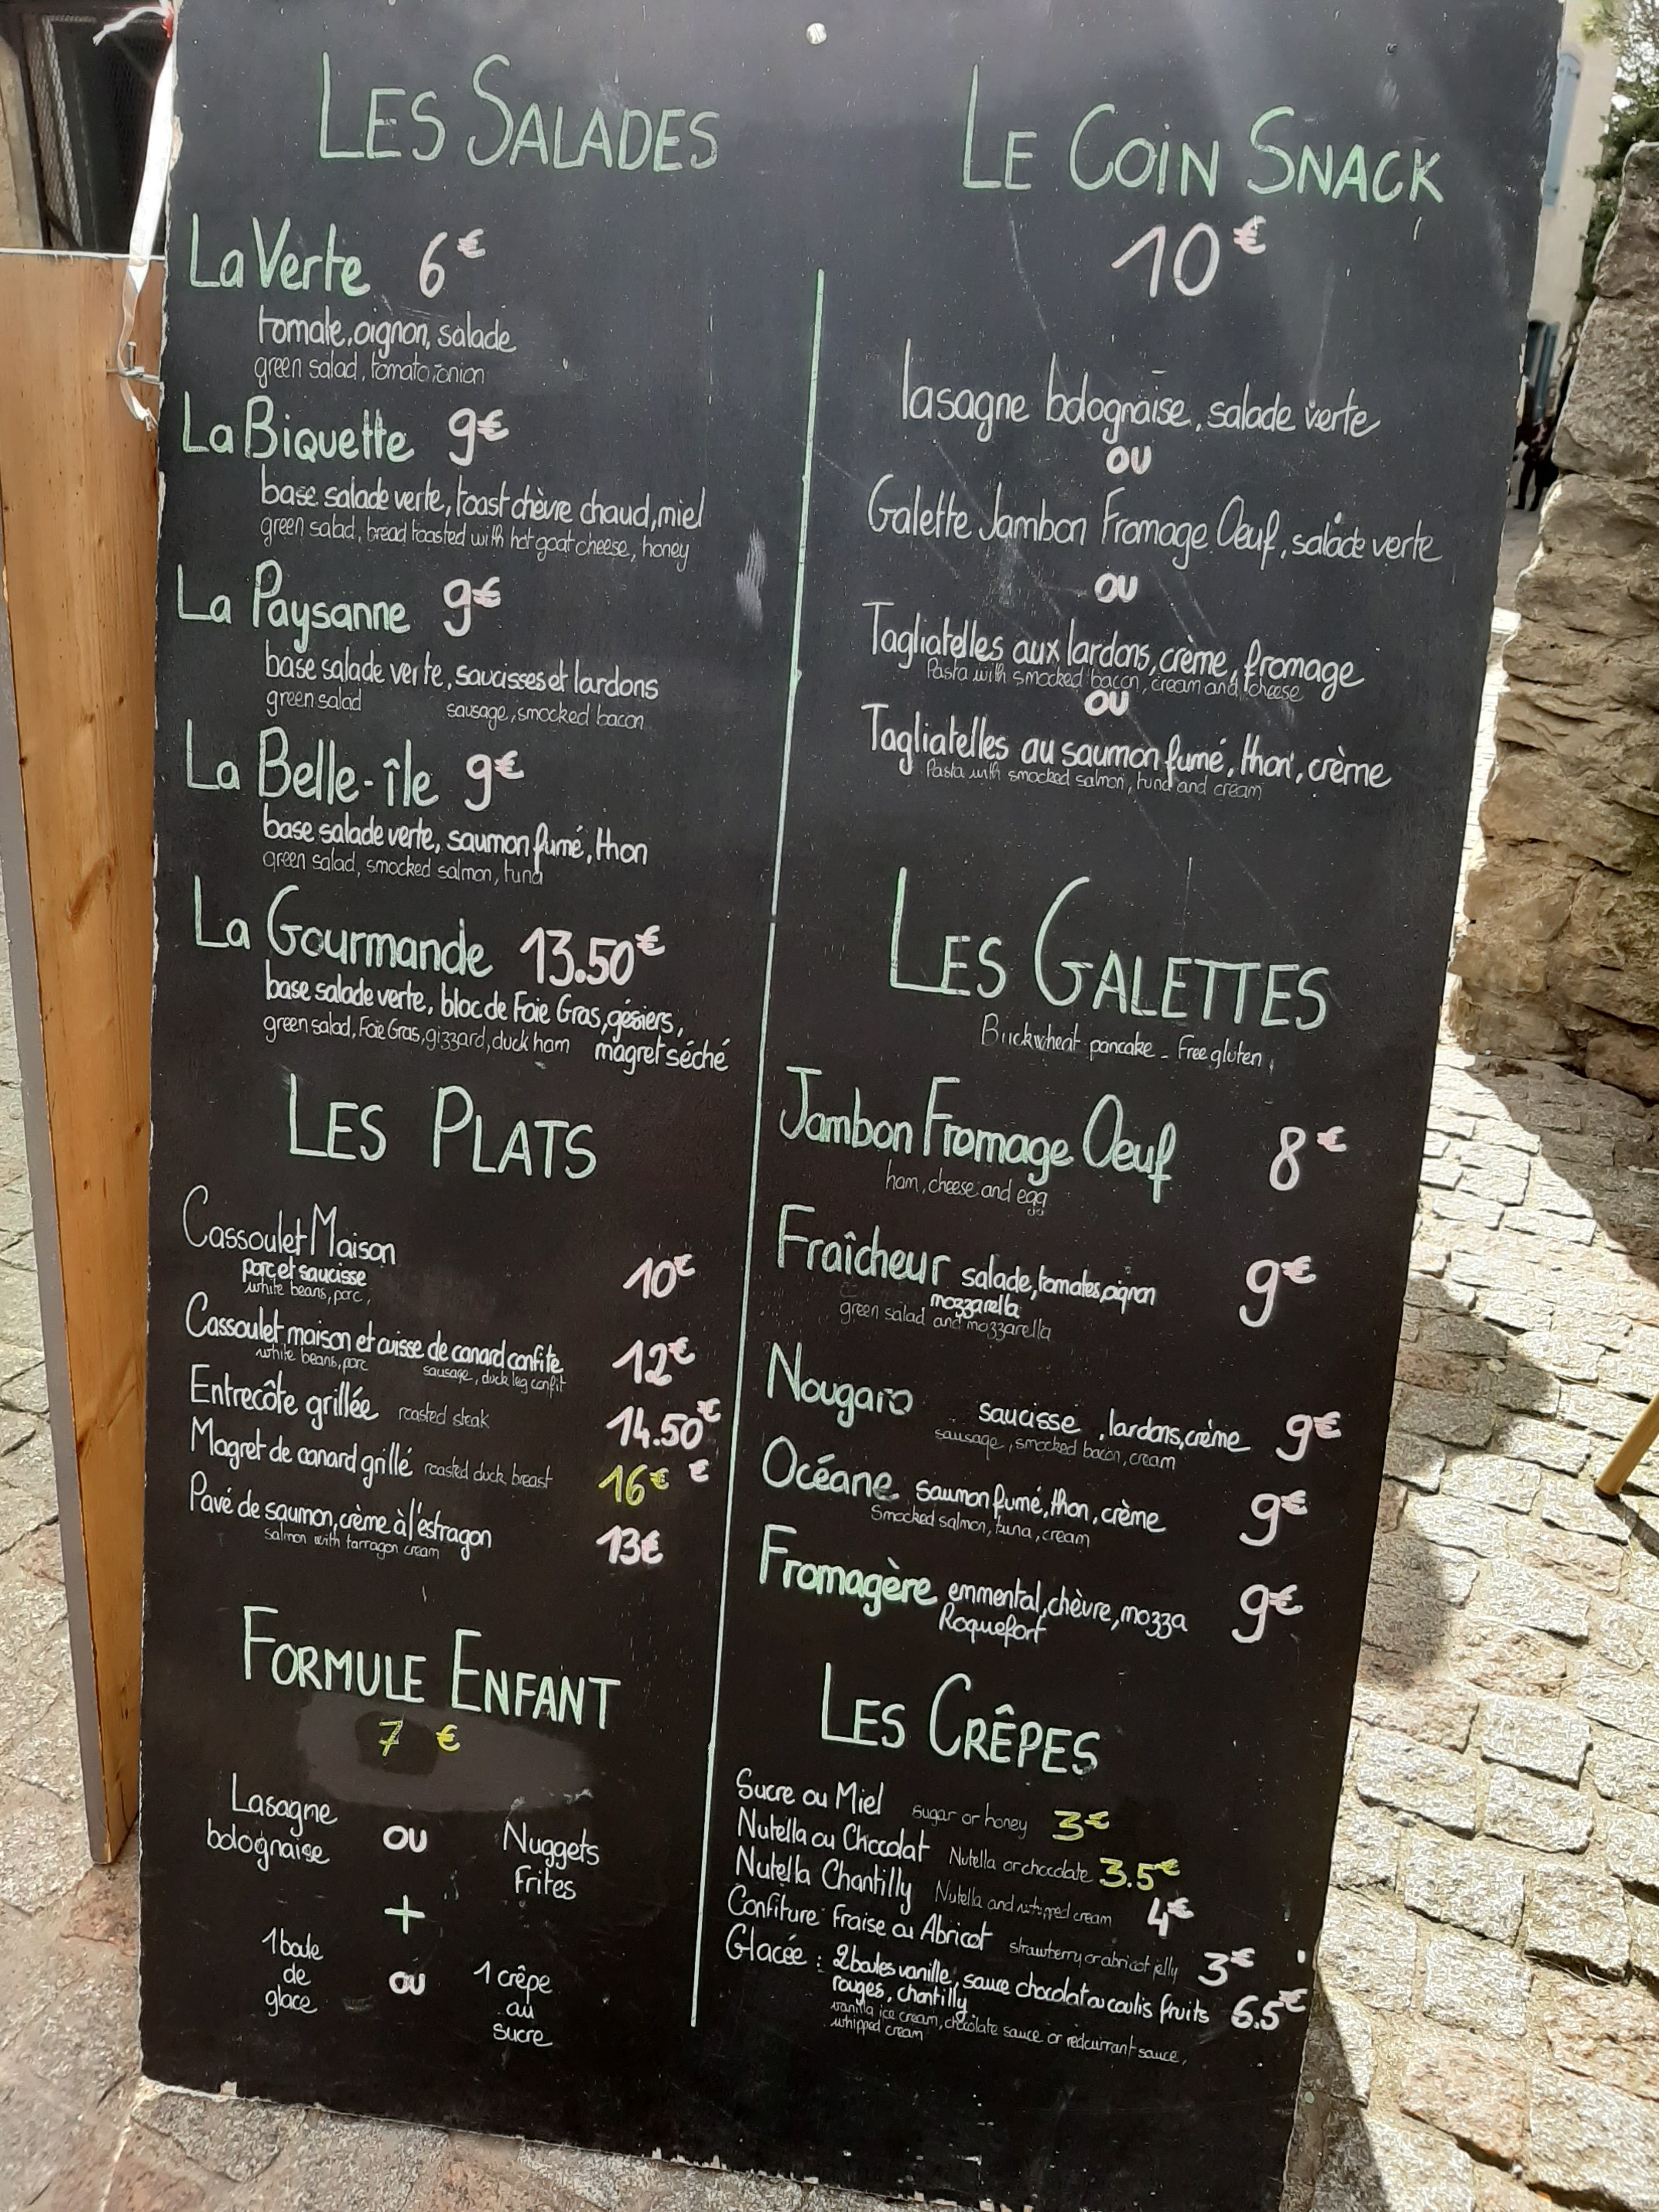 LES SALADES
La Verte 6€
tomate, oignon, salade
green salad, tomato, onion
La Biquette 9€
base salade verte, toast chèvre chaud, miel
green salad, bread toasted with hot goat cheese, honey
La Paysanne 9€
base salade verte, saucisses et lardons
green salad sausage, smocked bacon
La Belle-île 9€
base salade verte, saumon fumé, thon
green salad, smocked salmon, tuna
La Gourmande 13.50€
base salade verte, bloc de Foie Gras, gésiers,
magret séché
green salad, Foie Gras, gizzard, duck ham
LES PLATS
Cassoulet Maison 10€
porc et saucisse
white beans, porc,
Cassoulet maison et cuisse de canard confite 12€
white beans, porc sausage, duck leg confit
Entrecôte grillée roasted steak 14.50€
Magret de canard grillé roasted duck breast 16€ €
Pavé de saumon, crème à l'estragon 13€
Salmon with tarragon cream
FORMULE ENFANT
7 €
Lasagne
bolognaise
OU
Nuggets
Frites
+
1 boule
de
glace
OU
1 crêpe
au
sucre
LE COIN SNACK
10€
lasagne bolognaise, salade verte
OU
Galette Jambon Fromage Oeuf, salade verte
OU
Tagliatelles aux lardons, crème, fromage
Pasta with smocked bacon, cream and cheese
OU
Tagliatelles au saumon fumé, thon, crème
Pasta with smocked salmon, tuna and cream
LES GALETTES
Buckwheat pancake - Free gluten
Jambon Fromage Oeuf 8€
ham, cheese and egg
Fraîcheur salade, tomates, oignon 9€
mozzarella
green salad and mozzarella
Nougaro saucisse, lardons, crème 9€
sausage, smocked bacon, cream
Océane saumon fumé, thon, crème 9€
Smocked salmon, tuna, cream
Fromagère emmental, chèvre, mozza 9€
Roquefort
LES CRÊPES
Sucre ou Miel sugar or honey 3€
Nutella ou Chocolat Nutella or chocolate 3.5€
Nutella Chantilly Nutella and whipped cream 4€
Confiture Fraise ou Abricot strawberry or abricot jelly 3€
Glacée : 2 boules vanille, sauce chocolat ou coulis fruits 6.5€
rouges, chantilly
vanilla ice cream, chocolate sauce or redcurrant sauce,
whipped cream